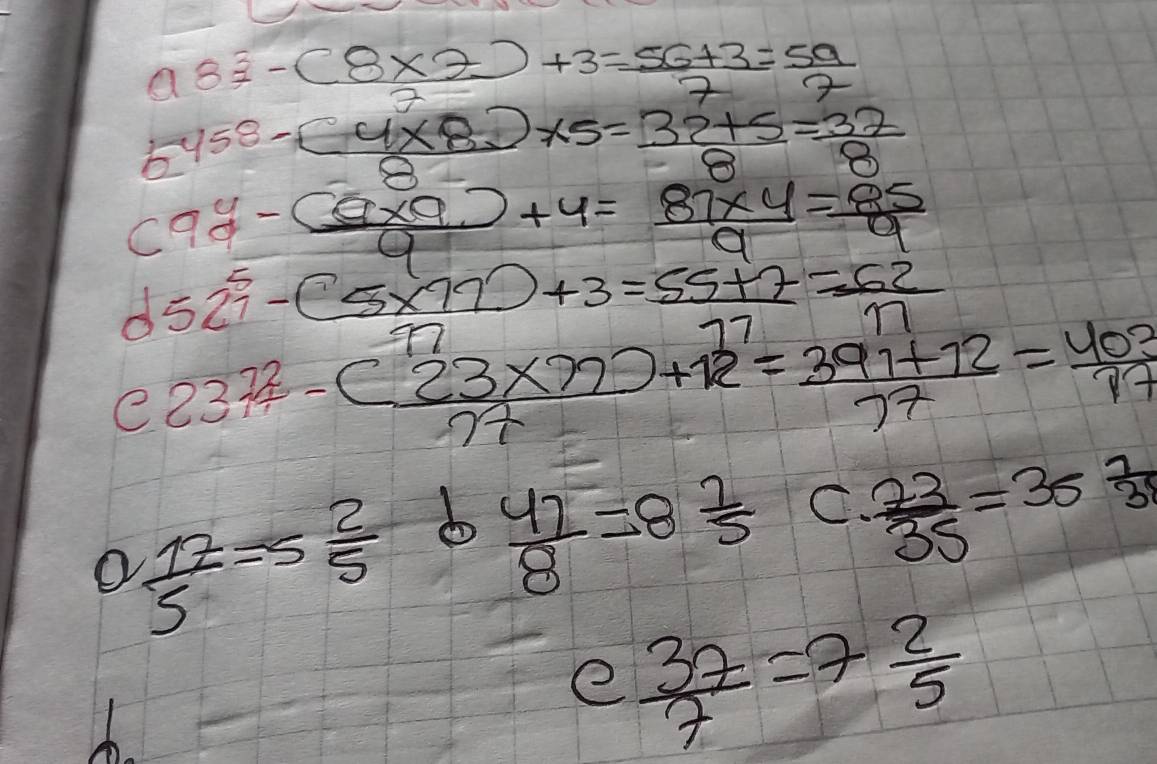 a 8 3/7 - (8×7)/7 + 3 = 56+3/7 = 59/7
b 4 5 8 - (4×8)/8 × 5 = 32+5/8 = 37/8
c 9 4/9 - (9×9)/9 + 4 = 81×4/9 = 85/9
d 5 2 5/11 - (5×11)/11 + 3 = 55+7/11 = 62/11
e 23 12/17 - (23×17)/17 + 12 = 391+12/17 = 403/17
a 17/5 = 5 2/5 b 41/8 = 8 1/5 c. 73/35 = 35 1/35
e 37/7 = 7 2/5
d.